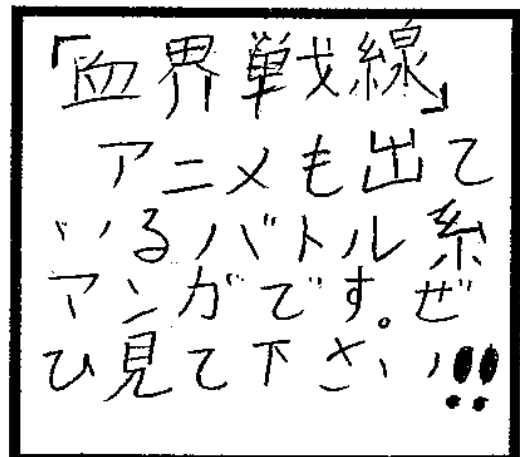 「血界戦線」
アニメも出て
いるバトル系
マンガです。ぜ
ひ見て下さい!!